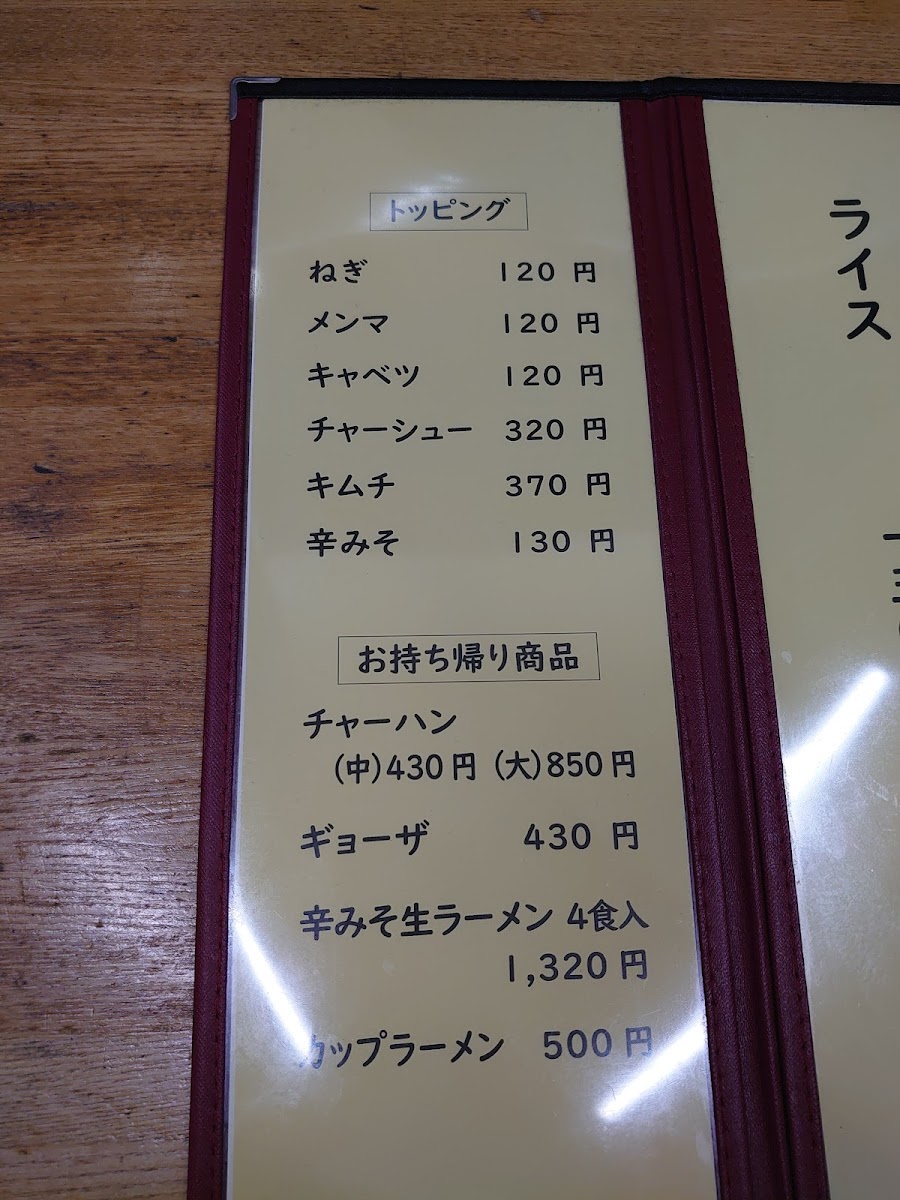 トッピング
ねぎ 120 円
メンマ 120 円
キャベツ 120 円
チャーシュー 320 円
キムチ 370 円
辛みそ 130 円
お持ち帰り商品
チャーハン
(中)430円 (大)850円
ギョーザ 430 円
辛みそ生ラーメン 4食入
1,320円
カップラーメン 500円
ライス